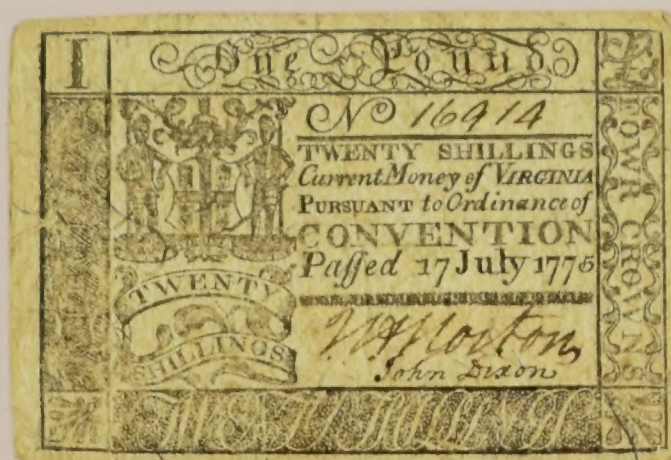 I One Pound
No 16914
TWENTY SHILLINGS
Current Money of VIRGINIA
PURSUANT to Ordinance of
CONVENTION
Paſſed 17 July 1775
TWENTY
SHILLINGS
John Dixon
FOWR CROWNS